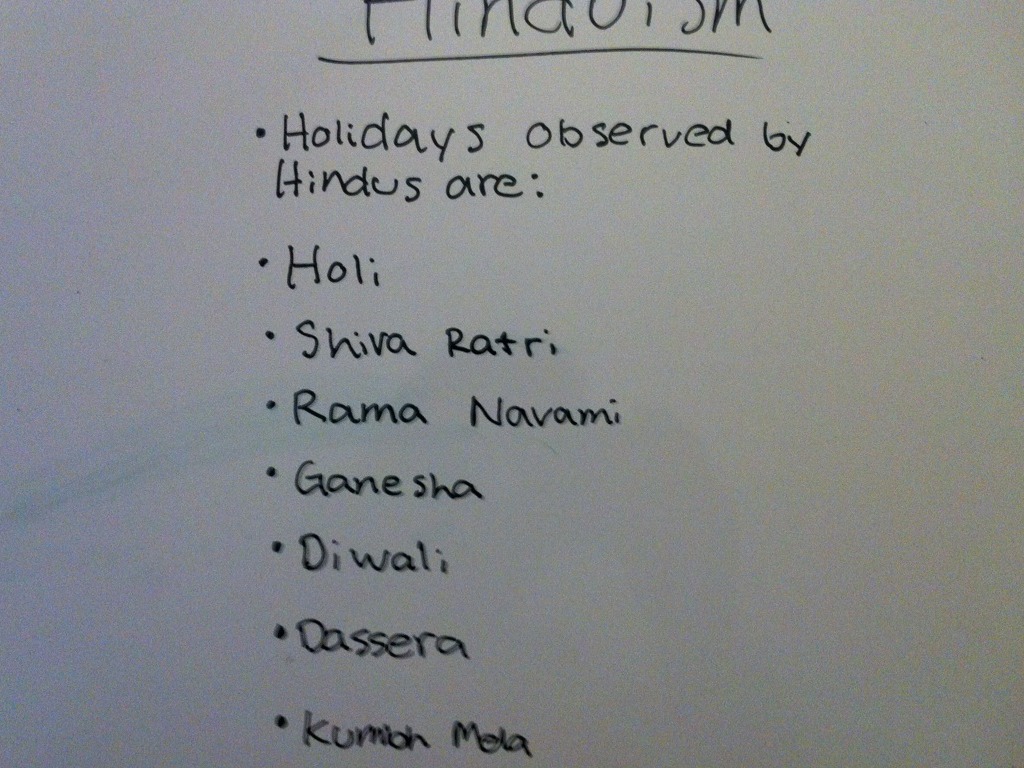 Hinduism
• Holidays observed by
Hindus are:
• Holi
• Shiva Ratri
• Rama Navami
• Ganesha
• Diwali
• Dassera
• Kumbh Mela